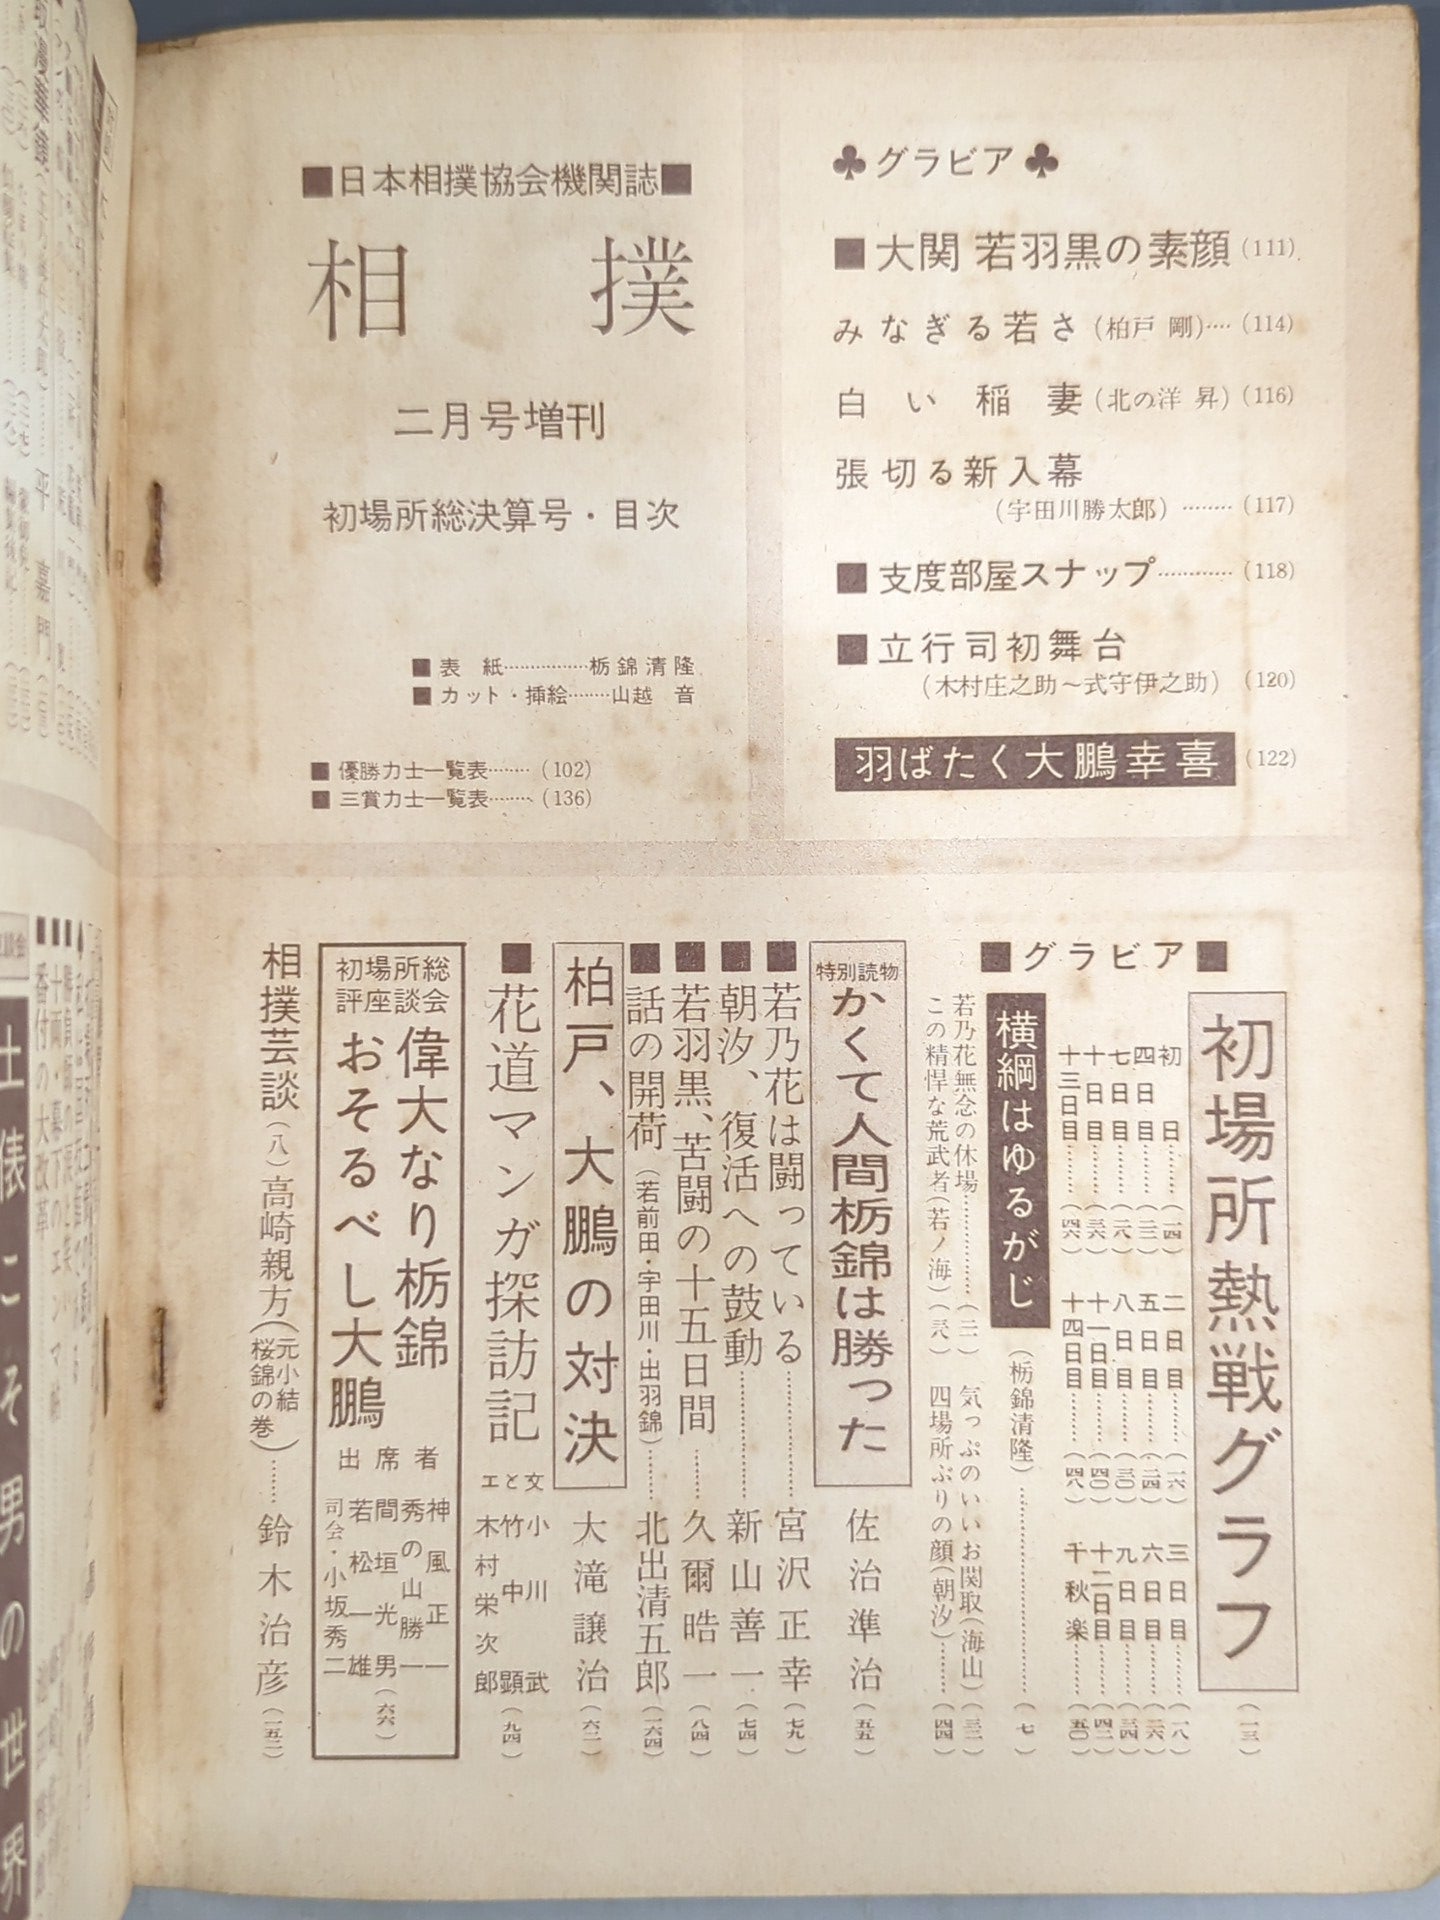 ■日本相撲協会機関誌■
相撲
二月号増刊
初場所総決算号・目次
■表紙……………栃錦清隆
■カット・挿絵………山越 音
■優勝力士一覧表………(102)
■三賞力士一覧表………(136)
♣グラビア♣
■大関 若羽黒の素顔(111)
みなぎる若さ(柏戸 剛)……(114)
白い稲妻(北の洋 昇)(116)
張切る新入幕
(宇田川勝太郎)………(117)
■支度部屋スナップ…………(118)
■立行司初舞台
(木村庄之助〜式守伊之助)(120)
羽ばたく大鵬幸喜(122)
■グラビア■
初場所熱戦グラフ(一三)
初日………(一四) 二日目………(一六) 三日目………(一八)
四日目………(二二) 五日目………(二四) 六日目………(二六)
七日目………(二八) 八日目………(三〇) 九日目………(三四)
十日目………(三六) 十一日目………(四〇) 十二日目………(四二)
十三日目………(四六) 十四日目………(四八) 千秋楽………(五〇)
横綱はゆるがじ(栃錦清隆)………(七)
若乃花無念の休場………(二一) 気っぷのいいお関取(海山)(三二)
この精悍な荒武者(若ノ海)(三八) 四場所ぶりの顔(朝汐)………(四四)
特別読物
かくて人間栃錦は勝った 佐治準治(五五)
■若乃花は闘っている………宮沢正幸(七九)
■朝汐、復活への鼓動………新山善一(七四)
■若羽黒、苦闘の十五日間………久爾晧一(八四)
■話の開荷(若前田・宇田川・出羽錦)………北出清五郎(一六四)
柏戸、大鵬の対決 大滝譲治(六二)
■花道マンガ探訪記 文とエ 小川武 竹中顕 木村栄次郎(九四)
初場所総評座談会
偉大なり栃錦
おそるべし大鵬
出席者
神風正一
秀の山勝一
間垣光男
若松一雄
司会・小坂秀二(六六)
相撲芸談(八)高崎親方(元小結桜錦の巻)………鈴木治彦(一五二)
平 嘉門
土俵こそ男の世界
番付の大改革